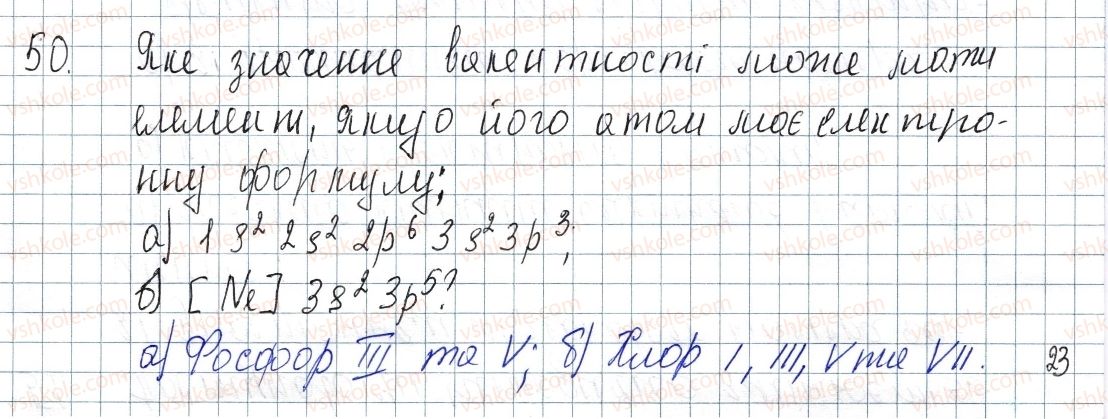 50. Яке значення валентності може мати
елемент, якщо його атом має електро-
нну формулу:
а) 1s² 2s² 2p⁶ 3s² 3p³;
б) [Ne] 3s² 3p⁵?
а) Фосфор III та V; б) Хлор I, III, V та VII.
23